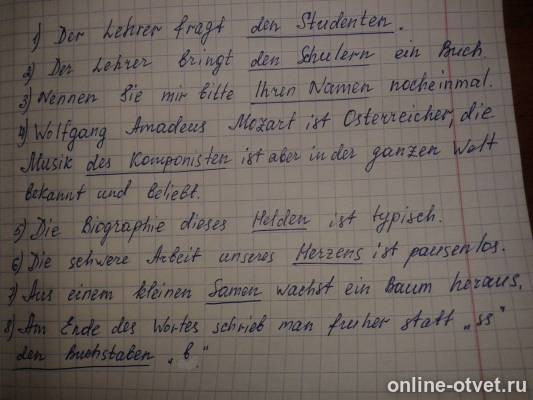 1) Der Lehrer fragt den Studenten.
2) Der Lehrer bringt den Schulern ein Buch.
3) Nennen Sie mir bitte Ihren Namen nocheinmal.
4) Wolfgang Amadeus Mozart ist Osterreicher, die
Musik des Komponisten ist aber in der ganzen Welt
bekannt und beliebt.
5) Die Biographie dieses Helden ist typisch.
6) Die schwere Arbeit unseres Herzens ist pausenlos.
7) Aus einem kleinen Samen wachst ein Baum heraus.
8) Am Ende des Wortes schrieb man fruher statt „ss"
den Buchstaben „ß."
online-otvet.ru